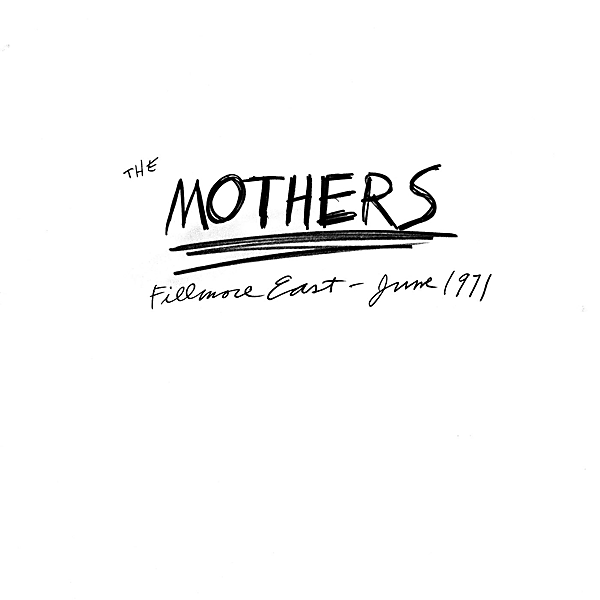 THE
MOTHERS
Fillmore East – June 1971